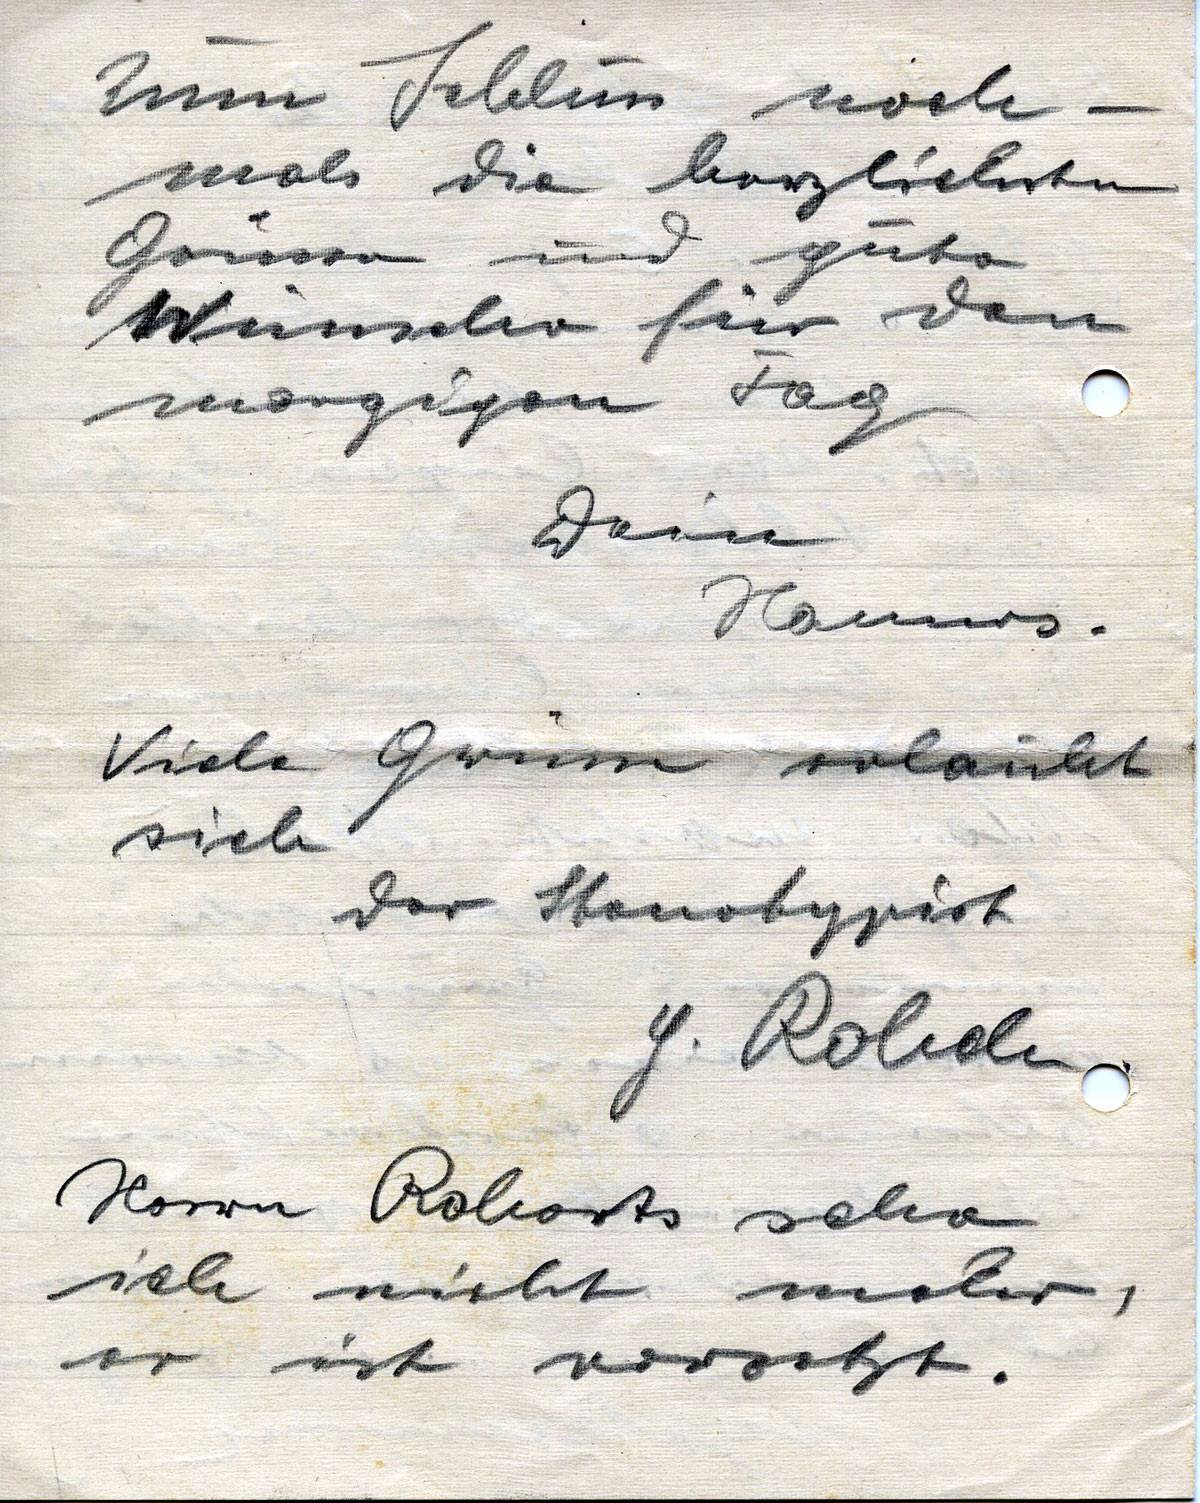 Zum Schluss noch-
mals die herzlichsten
Grüsse und gute
Wünsche für den
morgigen Tag
Dein
Hannes.
Viele Grüsse erlaubt
sich
der Stenotypist
J. Rohde.
Herrn Roberts sehe
ich nicht mehr,
er ist versetzt.